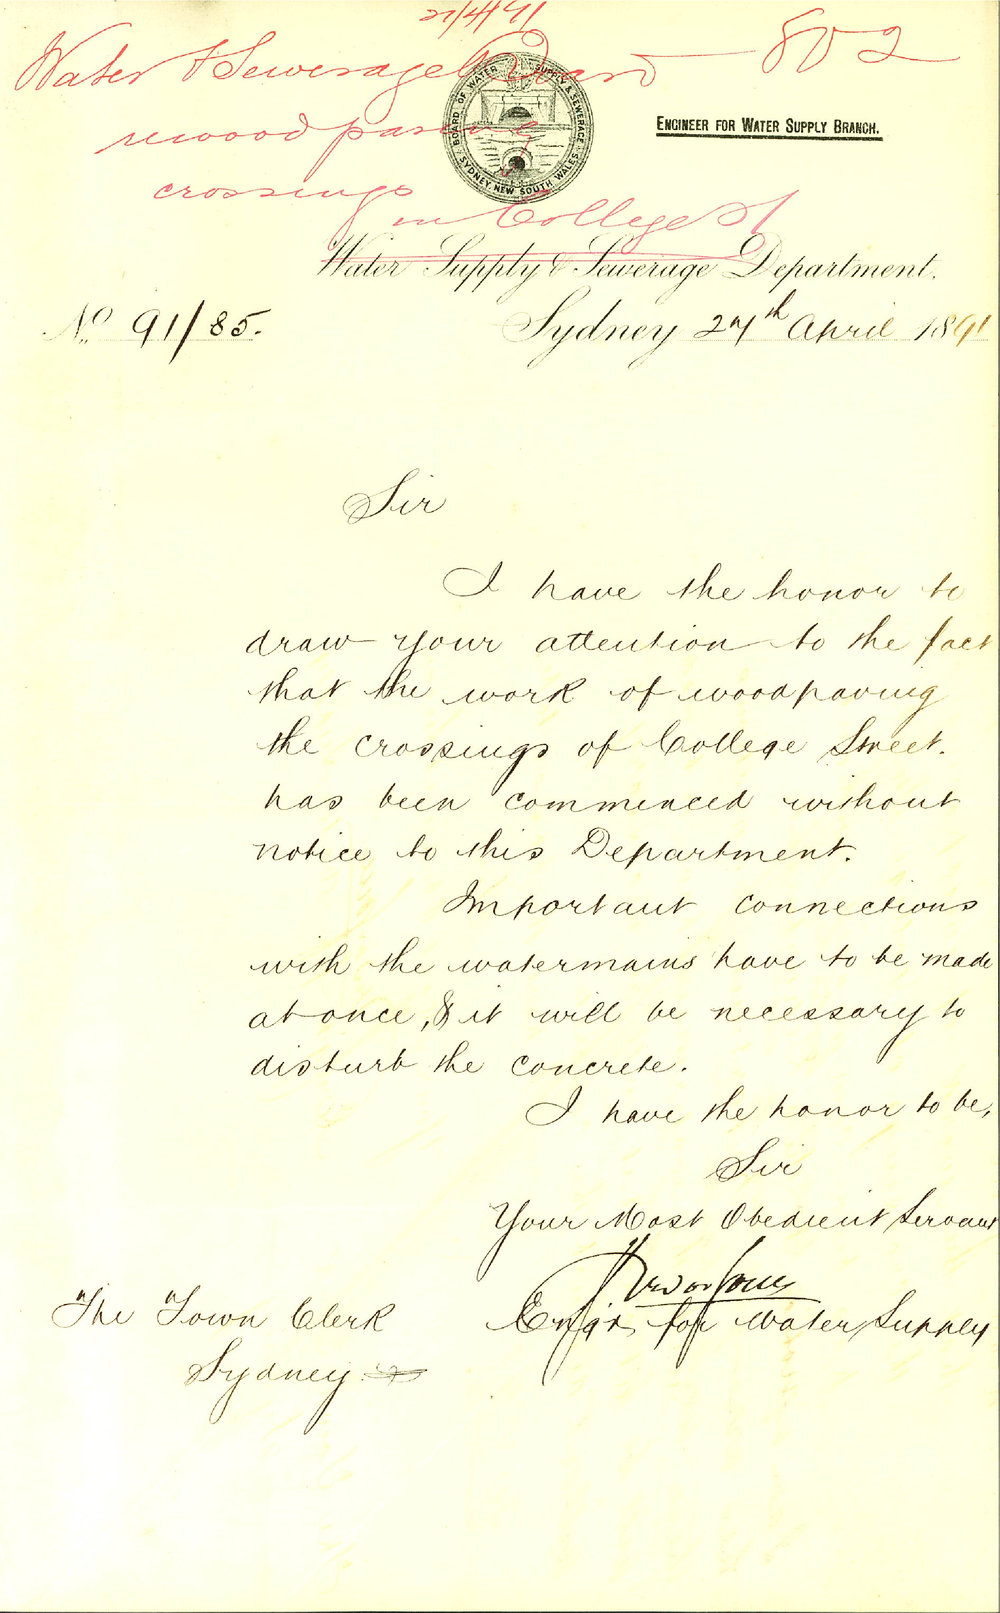 27/4/91
Water & Sewerage Board 802
re wood paving
crossings
in College St
BOARD OF WATER SUPPLY & SEWERAGE
SYDNEY NEW SOUTH WALES
ENGINEER FOR WATER SUPPLY BRANCH.
Water Supply & Sewerage Department.
No. 91/85.
Sydney 27th April 1891
Sir
I have the honor to
draw your attention to the fact
that the work of woodpaving
the crossings of College Street.
has been commenced without
notice to this Department.
Important connections
with the watermains have to be made
at once, & it will be necessary to
disturb the concrete.
I have the honor to be,
Sir
Your Most Obedient Servant
Trevor Jones
Engr. for Water Supply
The Town Clerk
Sydney